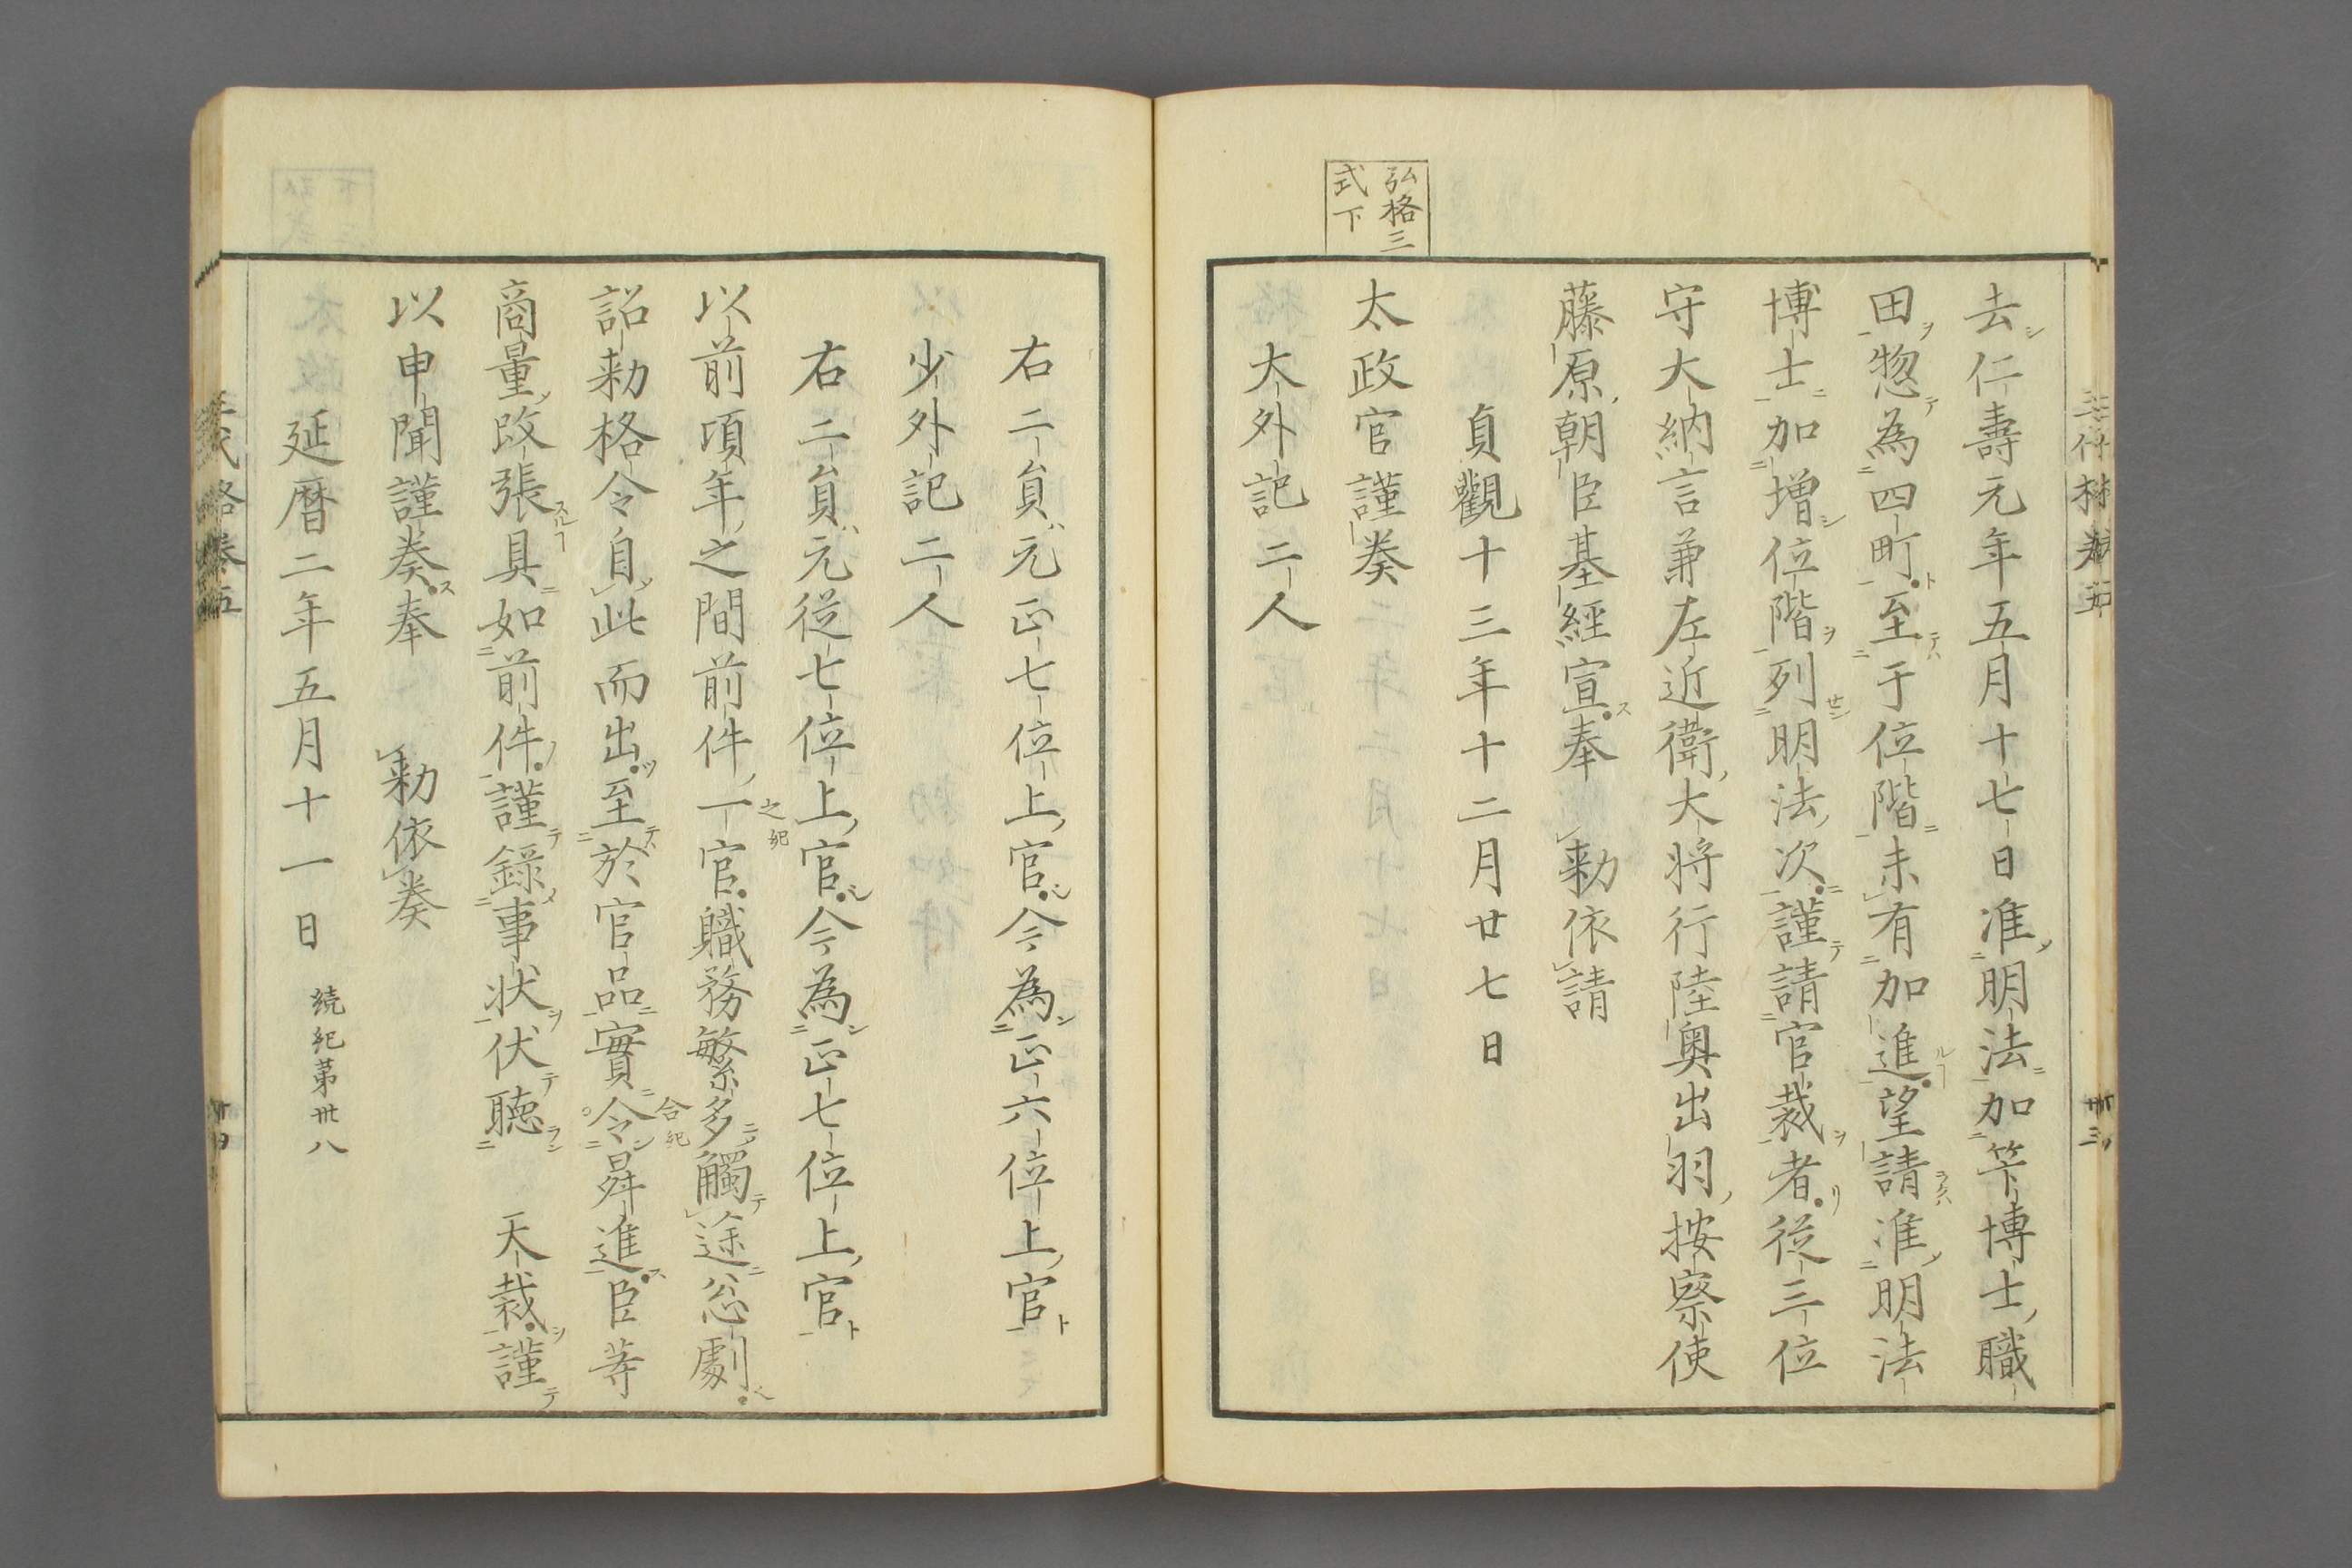 弘格三
式下
去仁壽元年五月十七日准明法加笇博士職
田惣為四町至于位階未有加進望請准明法
博士加增位階列明法次謹請官裁者從三位
守大納言兼左近衛大将行陸奥出羽按察使
藤原朝臣基經宣奉　勅依請
貞觀十三年十二月廿七日
太政官謹奏
大外記二人
右二負元正七位上官今為正六位上官
少外記二人
右二負元從七位上官今為正七位上官
以前項年之間前件一官職務繁多觸途忩劇
之紀
詔勅格令自此而出至於官品實令昇進臣等
合紀
商量改張具如前件謹錄事状伏聽　天裁謹
以申聞謹奏奉　勅依奏
延暦二年五月十一日 続紀第卅八